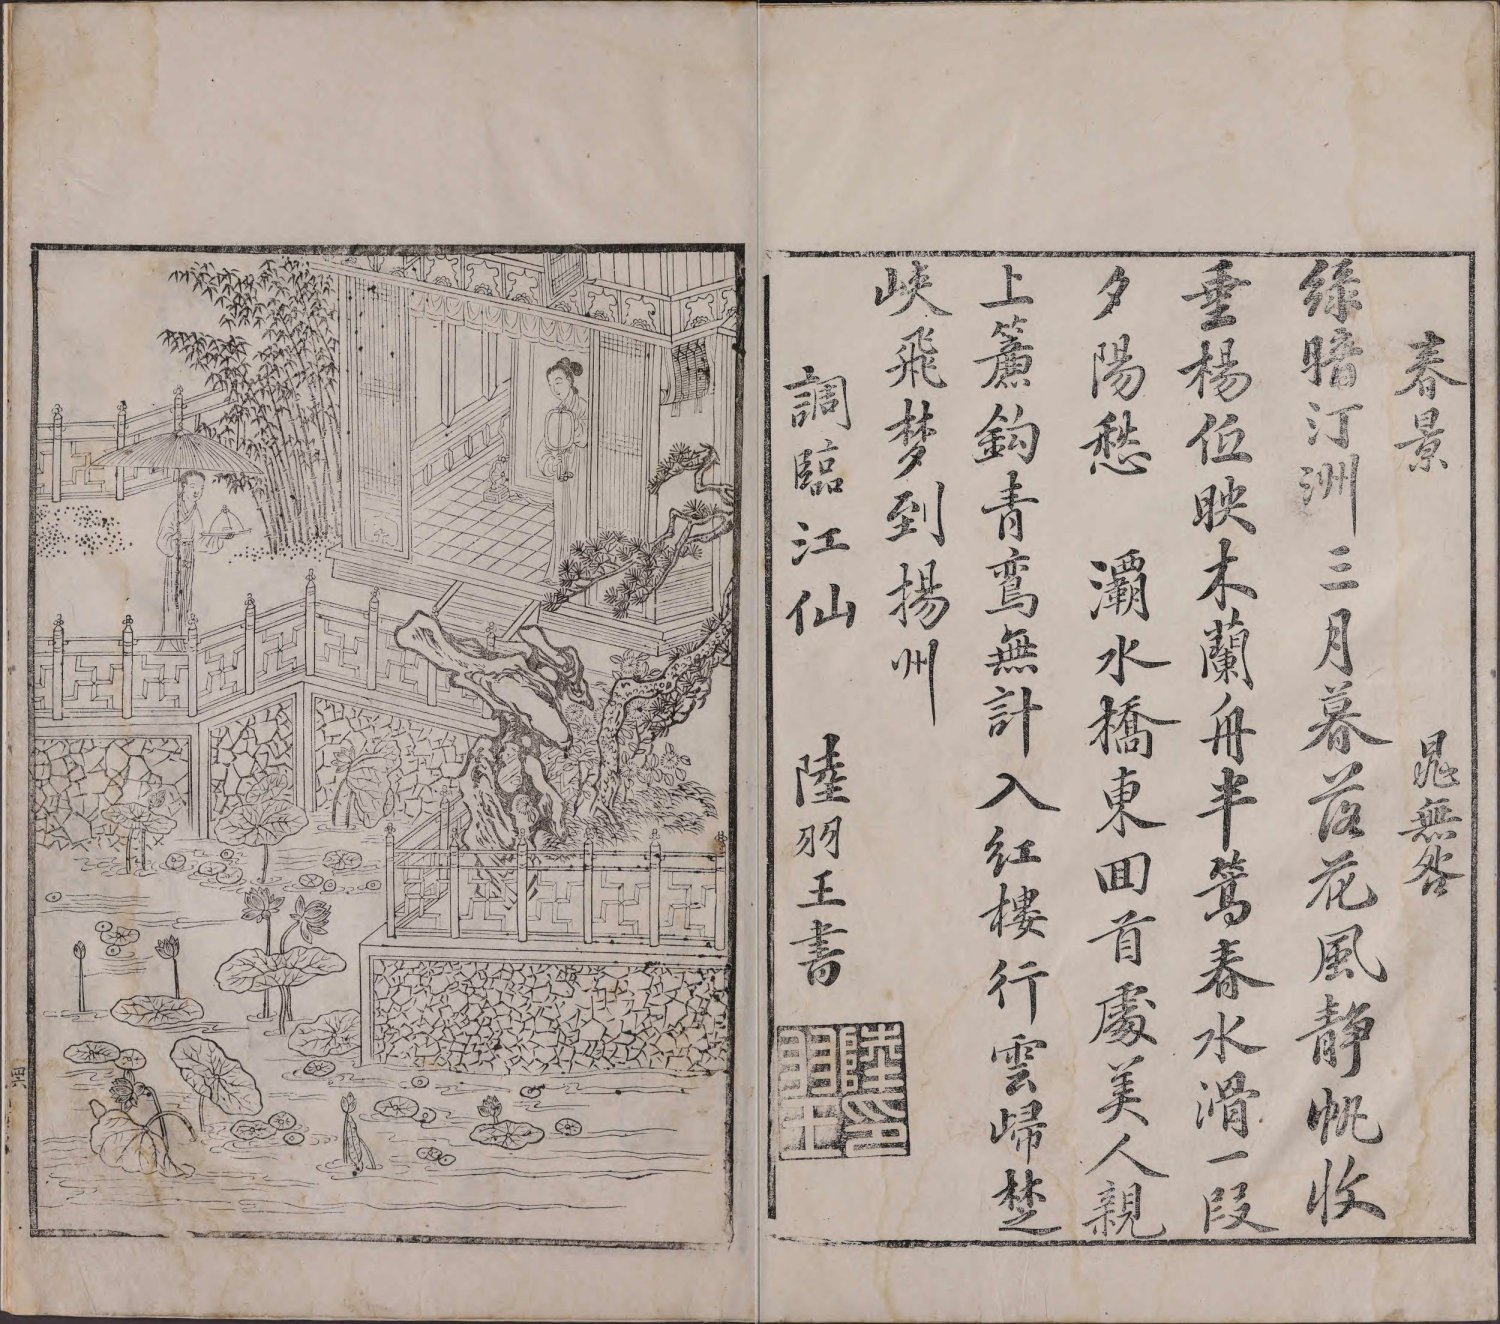 春景 晁無咎
綠暗汀洲三月暮落花風靜帆收
垂楊低映木蘭舟半篙春水滑一段
夕陽愁 灞水橋東囬首處美人親
上簾鈎青鸾無計入紅樓行雲歸楚
峽飛梦到揚州
調臨江仙 陸羽王書
陸印
羽王